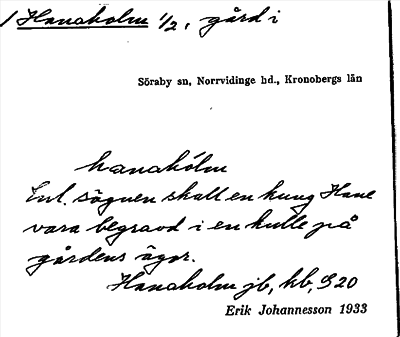 / Hanaholm 1/2, gård i
Söraby sn, Norrvidinge hd., Kronobergs län
hanahólm
Enl. sägnen skall en kung Hane
vara begravd i en kulle på
gårdens ägor.
Hanaholm jb, kb, G20
Erik Johannesson 1933